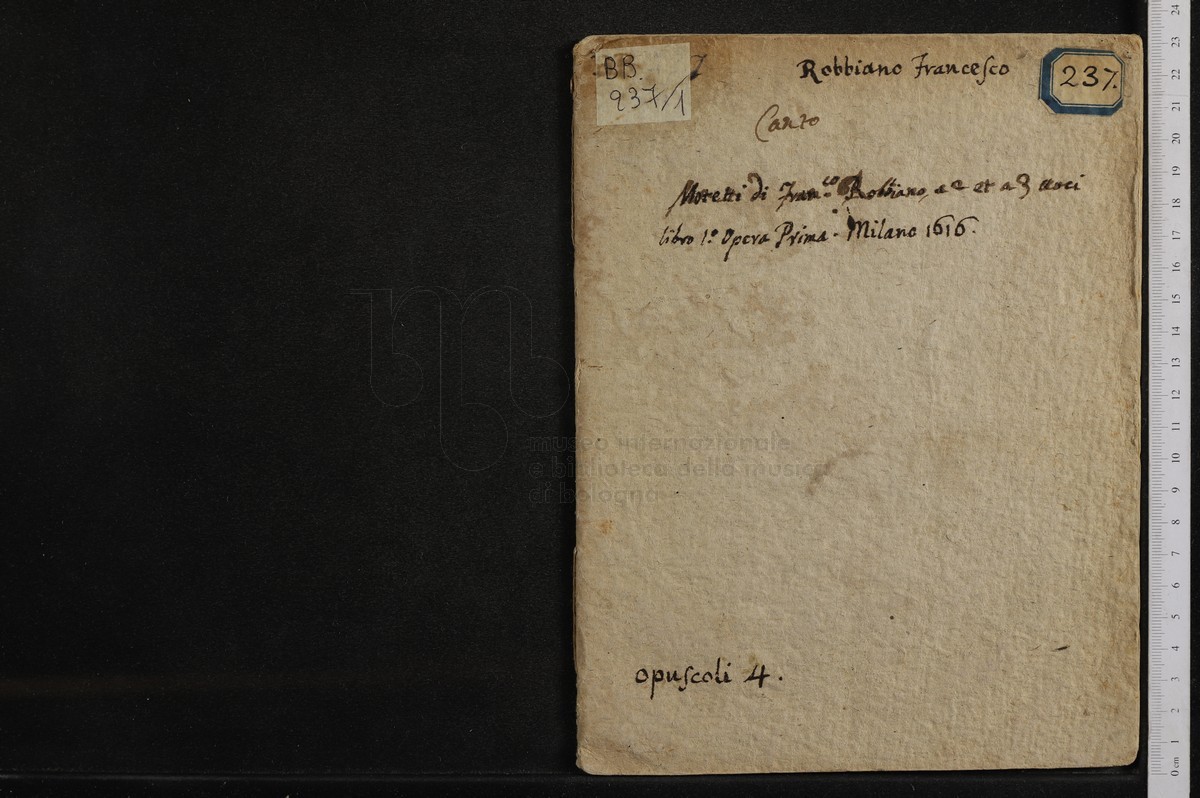 BB.
237/1
Robbiano Franceſco
237.
Canto
Motetti di Fran.co Robbiano, a 2 et a 3 uoci
libro 1.o Opera Prima. Milano 1616.
museo internazionale
e biblioteca della musica
di bologna
opuſcoli 4.
24
23
22
21
20
19
18
17
16
15
14
13
12
11
10
9
8
7
6
5
4
3
2
1
0 cm